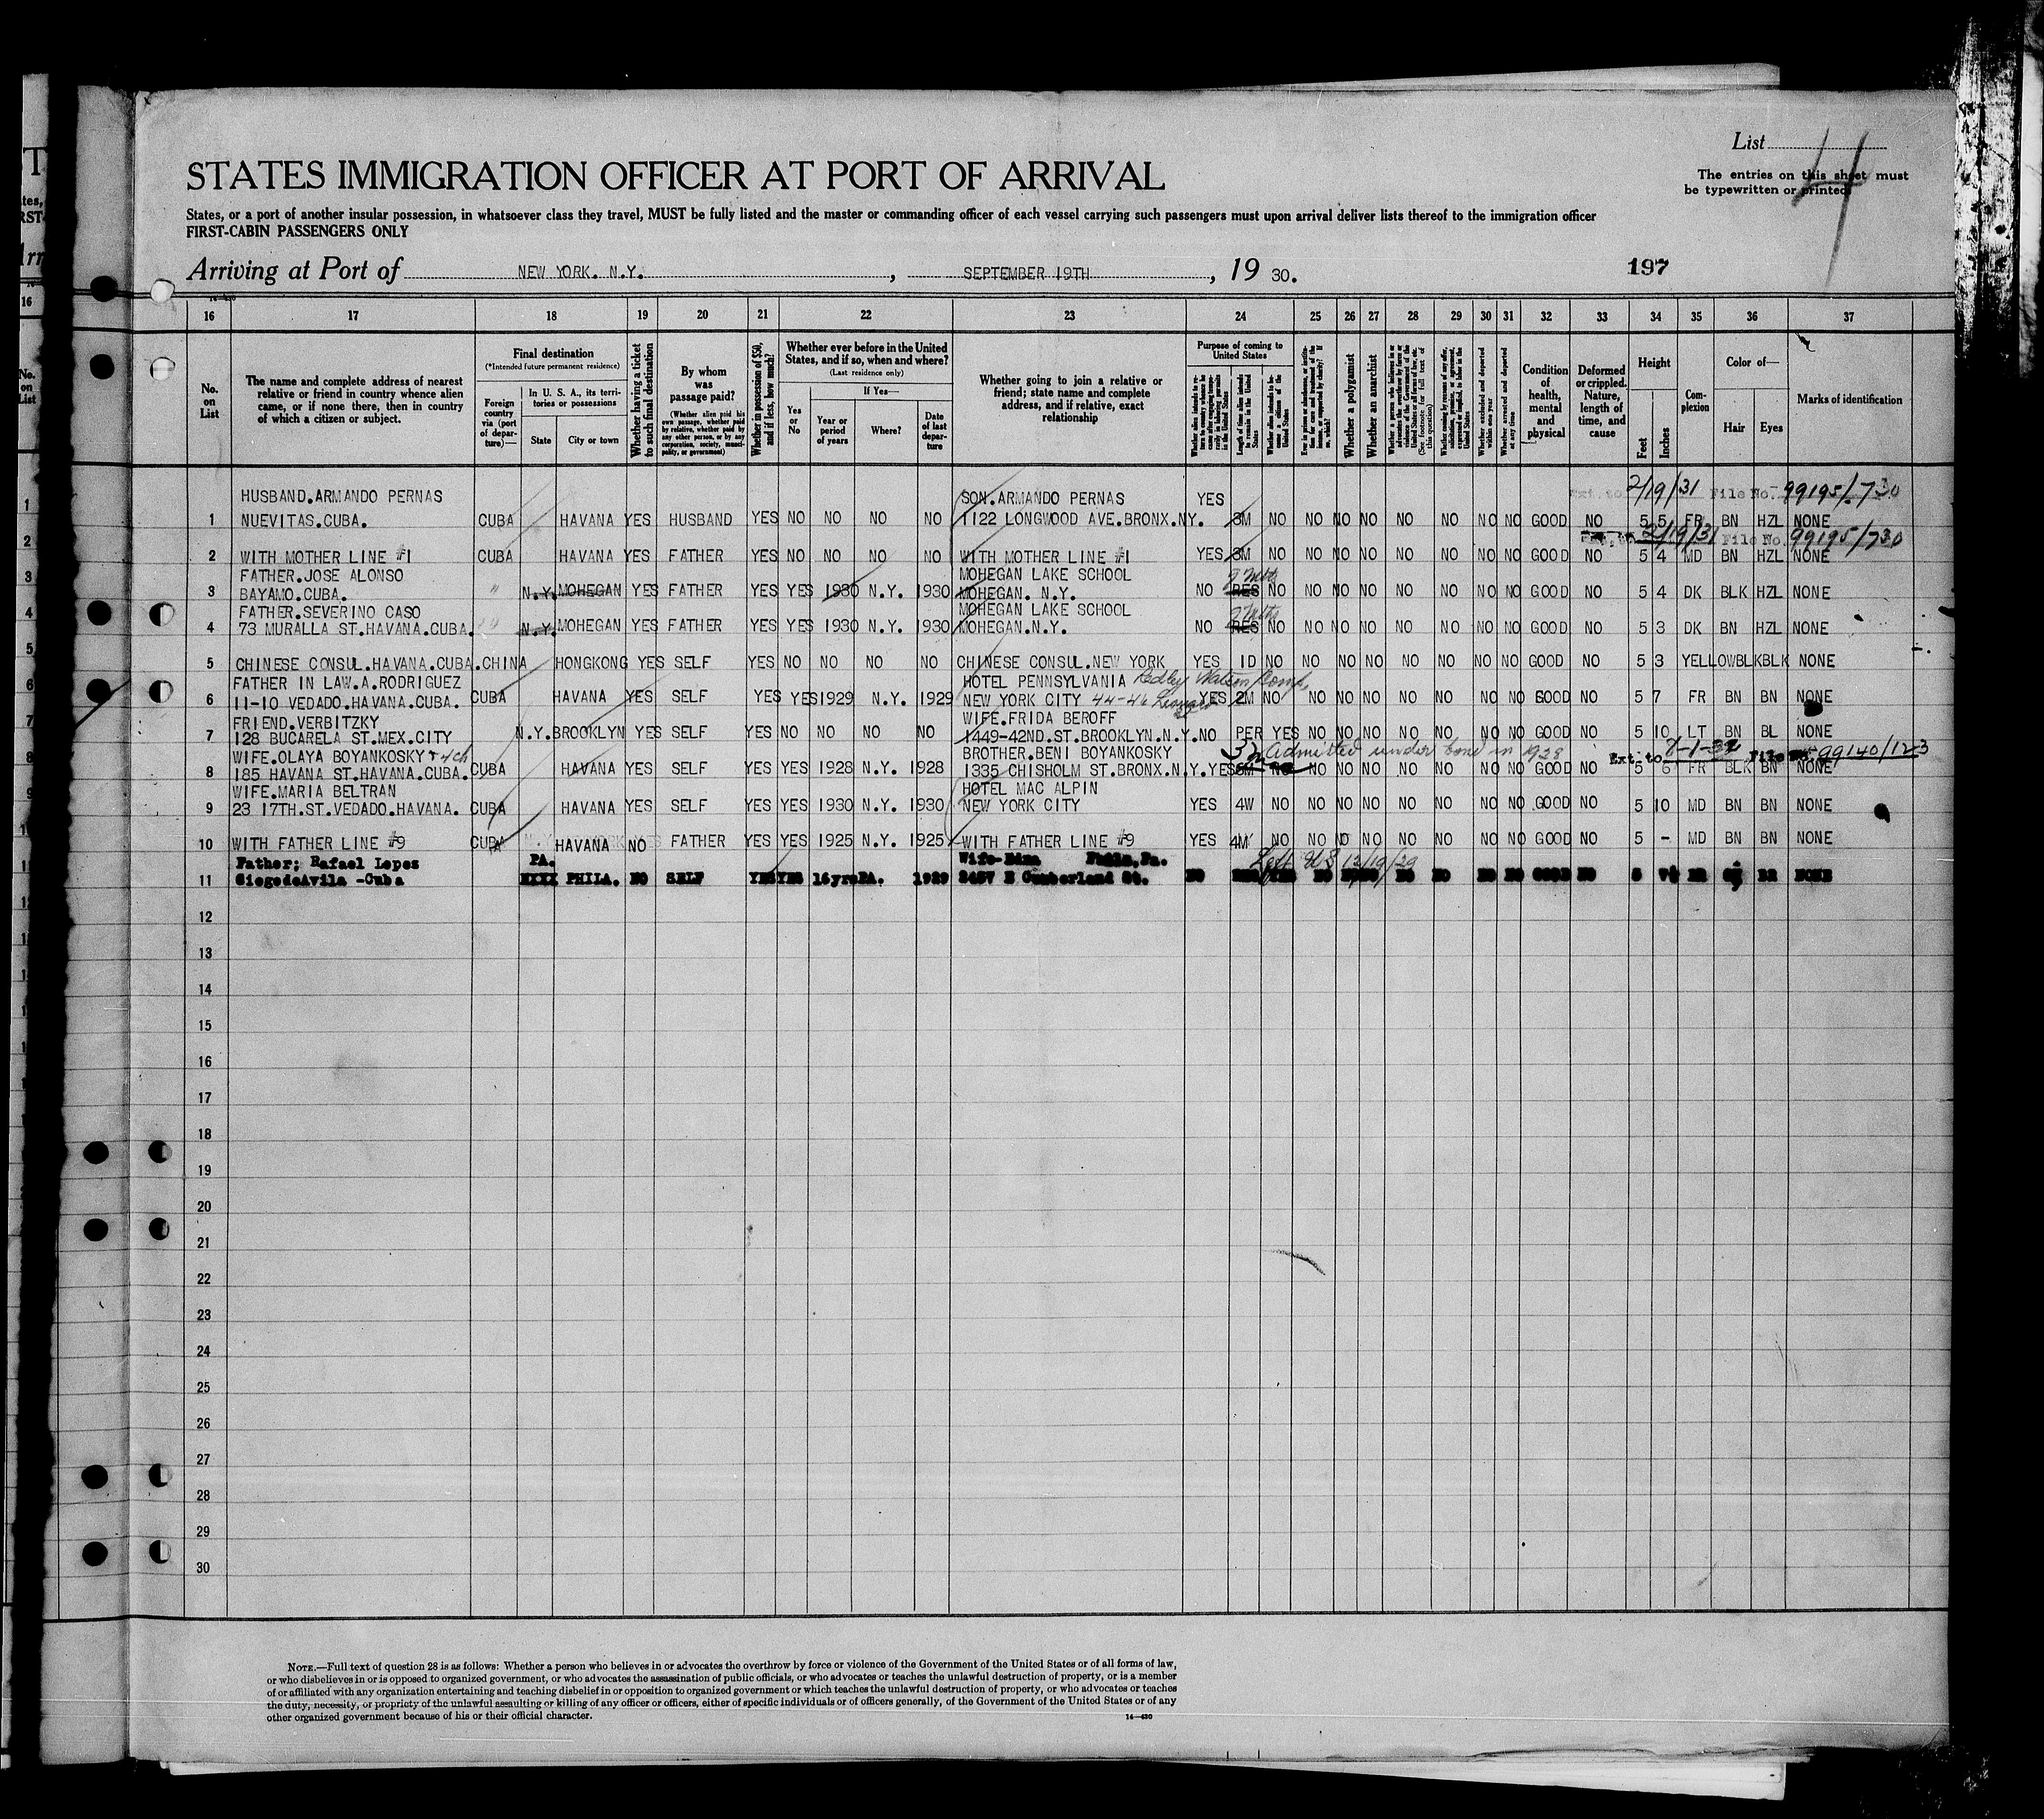 List 4
STATES IMMIGRATION OFFICER AT PORT OF ARRIVAL
The entries on this sheet must
be typewritten or printed
States, or a port of another insular possession, in whatsoever class they travel, MUST be fully listed and the master or commanding officer of each vessel carrying such passengers must upon arrival deliver lists thereof to the immigration officer
FIRST-CABIN PASSENGERS ONLY
Arriving at Port of NEW YORK. N.Y. , SEPTEMBER 19TH , 19 30.
197
16 17 18 19 20 21 22 23 24 25 26 27 28 29 30 31 32 33 34 35 36 37
No. on List
The name and complete address of nearest relative or friend in country whence alien came, or if none there, then in country of which a citizen or subject.
Final destination
(*Intended future permanent residence)
Foreign country via (port of departure)—
In U. S. A., its territories or possessions
State
City or town
Whether having a ticket to such final destination
By whom was passage paid?
(Whether alien paid his own passage, whether paid by relative, whether paid by any other person, or by any corporation, society, municipality, or government)
Whether in possession of $50, and if less, how much?
Whether ever before in the United States, and if so, when and where?
(Last residence only)
Yes or No
If Yes—
Year or period of years
Where?
Date of last departure
Whether going to join a relative or friend; state name and complete address, and if relative, exact relationship
Purpose of coming to United States
Length of time alien intends to remain in the United States
Whether alien intends to become a citizen of the United States
Whether a polygamist
Whether an anarchist
(See footnote for full text of this question)
Whether excluded and deported within one year
Whether arrested and deported at any time
Condition of health, mental and physical
Deformed or crippled. Nature, length of time, and cause
Height
Feet
Inches
Complexion
Color of—
Hair
Eyes
Marks of identification
HUSBAND.ARMANDO PERNAS SON.ARMANDO PERNAS YES Ext. to 2/19/31 File No. 99195/730
1 NUEVITAS.CUBA. CUBA HAVANA YES HUSBAND YES NO NO NO NO 1122 LONGWOOD AVE.BRONX.NY. 3M NO NO NO NO NO NO NO NO GOOD NO 5 5 FR BN HZL NONE
2/19/31 File No. 99195/730
2 WITH MOTHER LINE #1 CUBA HAVANA YES FATHER YES NO NO NO NO WITH MOTHER LINE #1 YES 3M NO NO NO NO NO NO NO NO GOOD NO 5 4 MD BN HZL NONE
FATHER.JOSE ALONSO MOHEGAN LAKE SCHOOL
3 BAYAMO.CUBA. " N.Y. MOHEGAN YES FATHER YES YES 1930 N.Y. 1930 MOHEGAN. N.Y. NO RES NO NO NO NO NO NO NO NO GOOD NO 5 4 DK BLK HZL NONE
FATHER.SEVERINO CASO MOHEGAN LAKE SCHOOL
4 73 MURALLA ST.HAVANA.CUBA. N.Y. MOHEGAN YES FATHER YES YES 1930 N.Y. 1930 MOHEGAN.N.Y. NO RES NO NO NO NO NO NO NO NO GOOD NO 5 3 DK BN HZL NONE
5 CHINESE CONSUL.HAVANA.CUBA.CHINA HONGKONG YES SELF YES NO NO NO NO CHINESE CONSUL.NEW YORK YES 1D NO NO NO NO NO NO NO NO GOOD NO 5 3 YELLOW BLK BLK NONE
FATHER IN LAW.A.RODRIGUEZ HOTEL PENNSYLVANIA
6 11-10 VEDADO.HAVANA.CUBA. CUBA HAVANA YES SELF YES YES 1929 N.Y. 1929 NEW YORK CITY 44-46 Leonard YES 2M NO NO NO NO NO NO NO NO GOOD NO 5 7 FR BN BN NONE
FRIEND.VERBITZKY WIFE.FRIDA BEROFF
7 128 BUCARELA ST.MEX.CITY N.Y. BROOKLYN YES SELF YES NO NO NO NO 1449-42ND.ST.BROOKLYN.N.Y. NO PER YES NO NO NO NO NO NO NO GOOD NO 5 10 LT BN BL NONE
WIFE.OLAYA BOYANKOSKY + 4 ch BROTHER.BENI BOYANKOSKY Admitted under bond in 1928 Ext. to 7-1-32 File No. 99140/123
8 185 HAVANA ST.HAVANA.CUBA. CUBA HAVANA YES SELF YES YES 1928 N.Y. 1928 1335 CHISHOLM ST.BRONX.N.Y. YES 6M NO NO NO NO NO NO NO NO GOOD NO 5 6 FR BLK BN NONE
WIFE.MARIA BELTRAN HOTEL MAC ALPIN
9 23 17TH.ST.VEDADO.HAVANA. CUBA HAVANA YES SELF YES YES 1930 N.Y. 1930 NEW YORK CITY YES 4W NO NO NO NO NO NO NO NO GOOD NO 5 10 MD BN BN NONE
10 WITH FATHER LINE #9 CUBA HAVANA NO FATHER YES YES 1925 N.Y. 1925 WITH FATHER LINE #9 YES 4M NO NO NO NO NO NO NO NO GOOD NO 5 - MD BN BN NONE
Father; Rafael Lopes PA. Wife-Edna Phila,Pa. Left US 12/19/29
11 SiegodeAvila -Cuba XXXX PHILA. NO SELF YES YES 16yrs PA. 1929 2457 E Cumberland St. NO NO NO NO NO NO NO NO GOOD NO 5 7½ BR BR NONE
12
13
14
15
16
17
18
19
20
21
22
23
24
25
26
27
28
29
30
NOTE.—Full text of question 28 is as follows: Whether a person who believes in or advocates the overthrow by force or violence of the Government of the United States or of all forms of law,
or who disbelieves in or is opposed to organized government, or who advocates the assassination of public officials, or who advocates or teaches the unlawful destruction of property, or is a member
of or affiliated with any organization entertaining and teaching disbelief in or opposition to organized government or which teaches the unlawful destruction of property, or who advocates or teaches
the duty, necessity, or propriety of the unlawful assaulting or killing of any officer or officers, either of specific individuals or of officers generally, of the Government of the United States or of any
other organized government because of his or their official character.
14—430